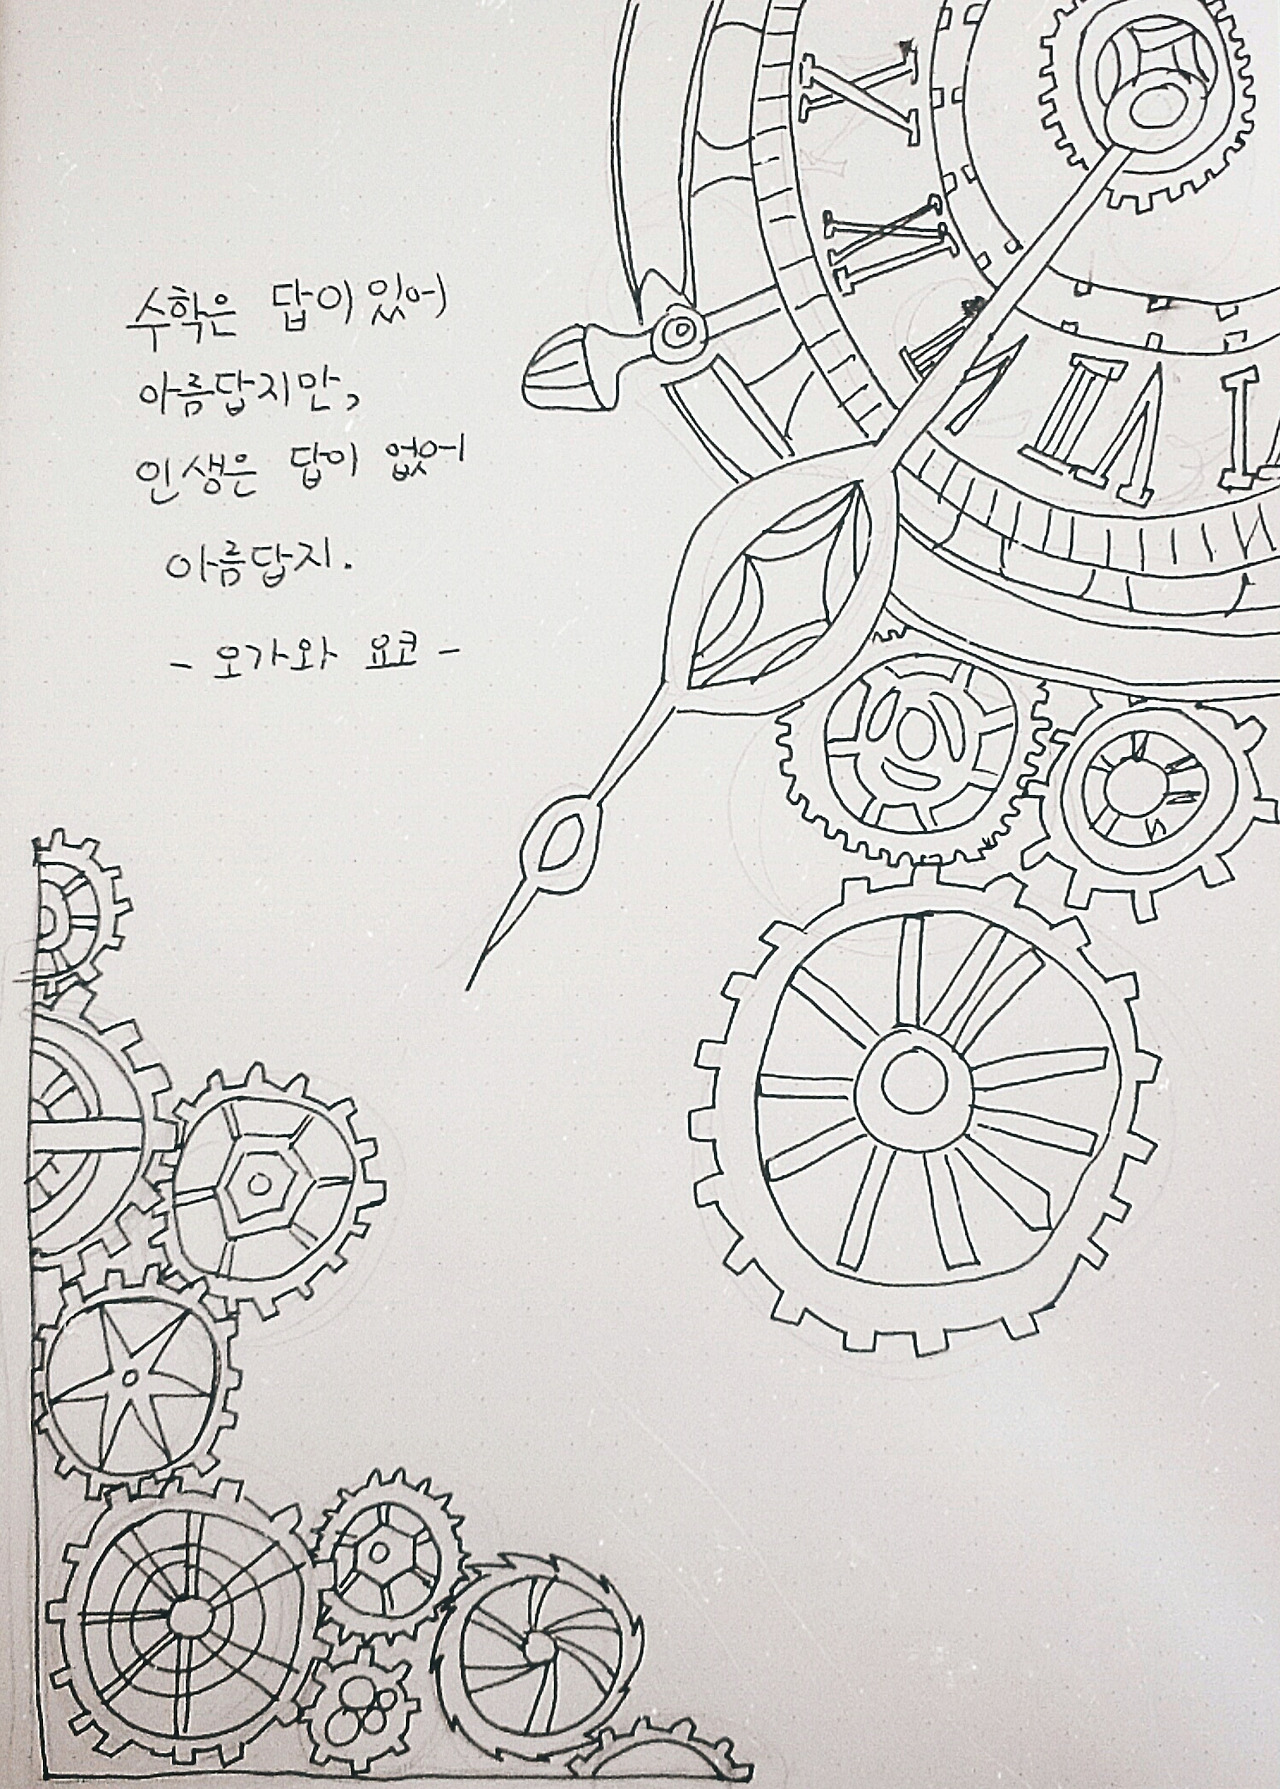 수학은 답이 있어
아름답지만,
인생은 답이 없어
아름답지.
- 오가와 요코 -
X